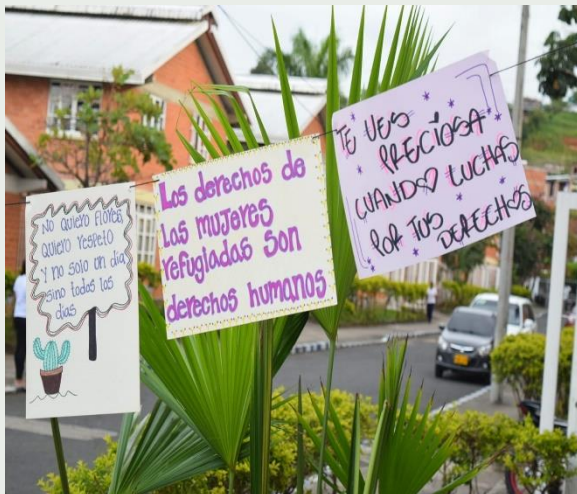 NO QUIERO FLORES,
QUIERO RESPETO
Y NO SOLO UN DIA
SINO TODOS LOS
DIAS
Los derechos de
Las mujeres
refugiadas son
derechos humanos
TE VES
PRECIOSA
CUANDO LUCHAS
POR TUS
DERECHOS